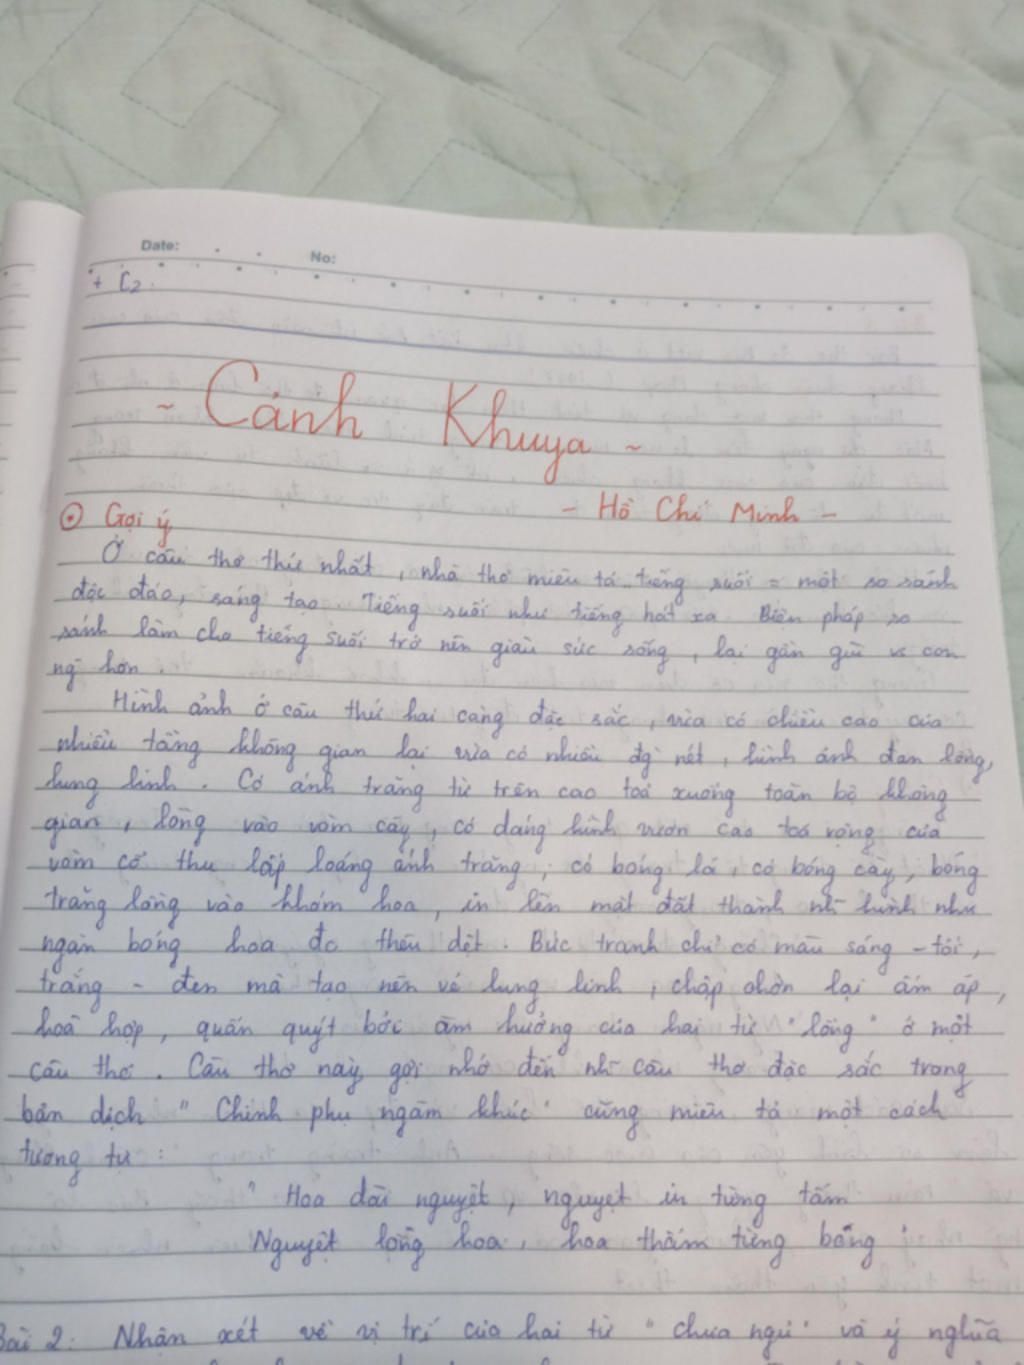 Date:
No:
+ C2.
~ Cảnh Khuya ~
- Hồ Chí Minh -
Gợi ý
Ở câu thơ thứ nhất, nhà thơ miêu tả tiếng suối = một so sánh
độc đáo, sáng tạo. Tiếng suối như tiếng hát xa. Biện pháp so
sánh làm cho tiếng suối trở nên giàu sức sống, lại gần gũi vs con
ng` hơn.
Hình ảnh ở câu thứ hai càng đặc sắc, vừa có chiều cao của
nhiều tầng không gian lại vừa có nhiều đg` nét, hình ảnh đan lồng,
lung linh. Có ánh trăng từ trên cao toả xuống toàn bộ không
gian, lồng vào vòm cây, có dáng hình vươn cao toả rộng của
vòm cổ thụ lấp loáng ánh trăng, có bóng lá, có bóng cây, bóng
trăng lồng vào khóm hoa, in lên mặt đất thành nh~ hình như
ngàn bóng hoa đc thêu dệt. Bức tranh chỉ có màu sáng - tối,
trắng - đen mà tạo nên vẻ lung linh, chập chờn lại ấm áp,
hoà hợp, quấn quýt bởi âm hưởng của hai từ "lồng" ở một
câu thơ. Câu thơ này gợi nhớ đến nh~ câu thơ đặc sắc trong
bản dịch "Chinh phụ ngâm khúc" cũng miêu tả một cách
tương tự:
"Hoa dãi nguyệt, nguyệt in từng tấm
Nguyệt lồng hoa, hoa thắm từng bông"
Bài 2: Nhận xét về vị trí của hai từ "chưa ngủ" và ý nghĩa